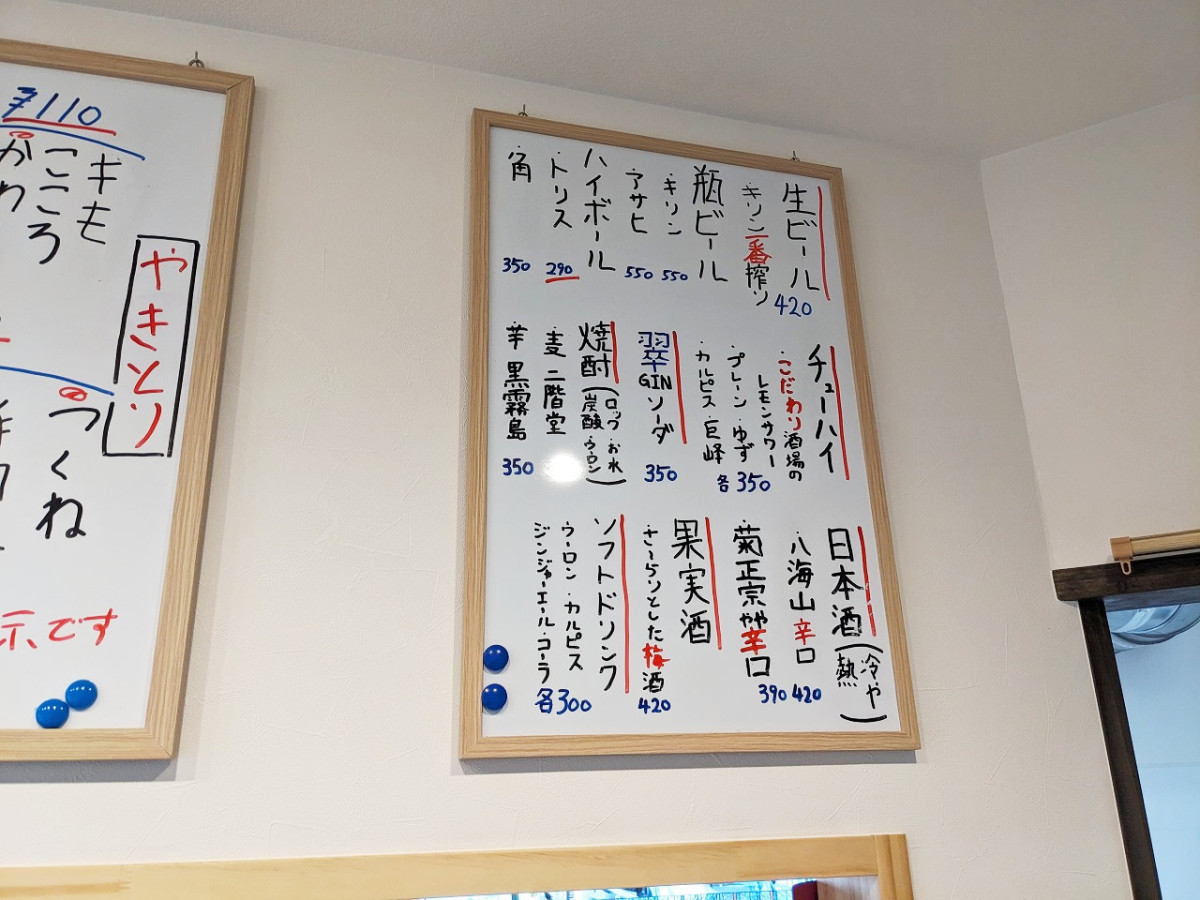 生ビール
キリン一番搾り
420
瓶ビール
・キリン
550
・アサヒ
550
ハイボール
・トリス
290
・角
350
チューハイ
・こだわり酒場の
レモンサワー
・プレーン・ゆず
・カルピス・巨峰
各350
翠
GINソーダ
350
焼酎(ロック・お水
炭酸 ウーロン)
・麦 二階堂
・芋 黒霧島
350
日本酒(冷や
熱)
・八海山 辛口
420
・菊正宗 やや辛口
390
果実酒
・さらりとした梅酒
420
ソフトドリンク
・ウーロン・カルピス
・ジンジャーエール・コーラ
各300
やきとり
¥110
・キモ
・こころ
・かわ
つくね
示です